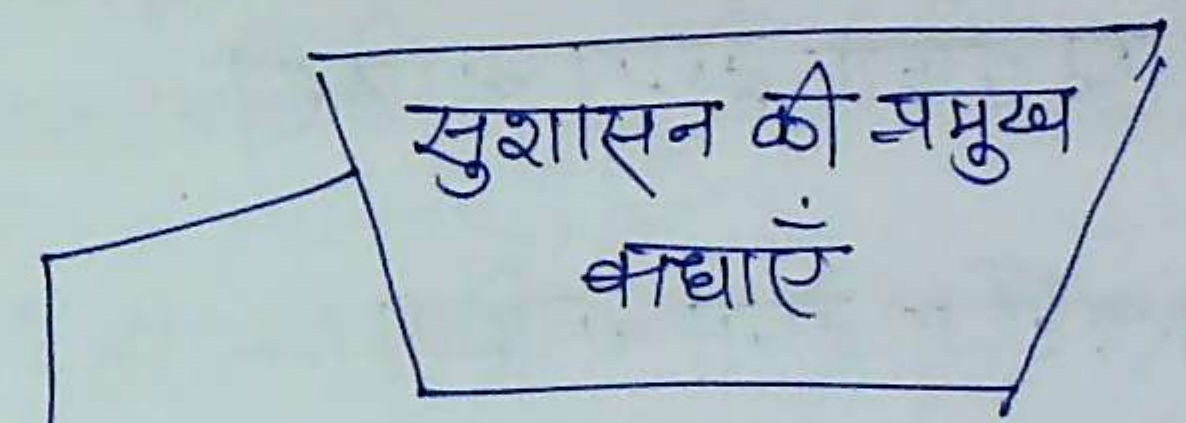 सुशासन की प्रमुख
बाधाएँ